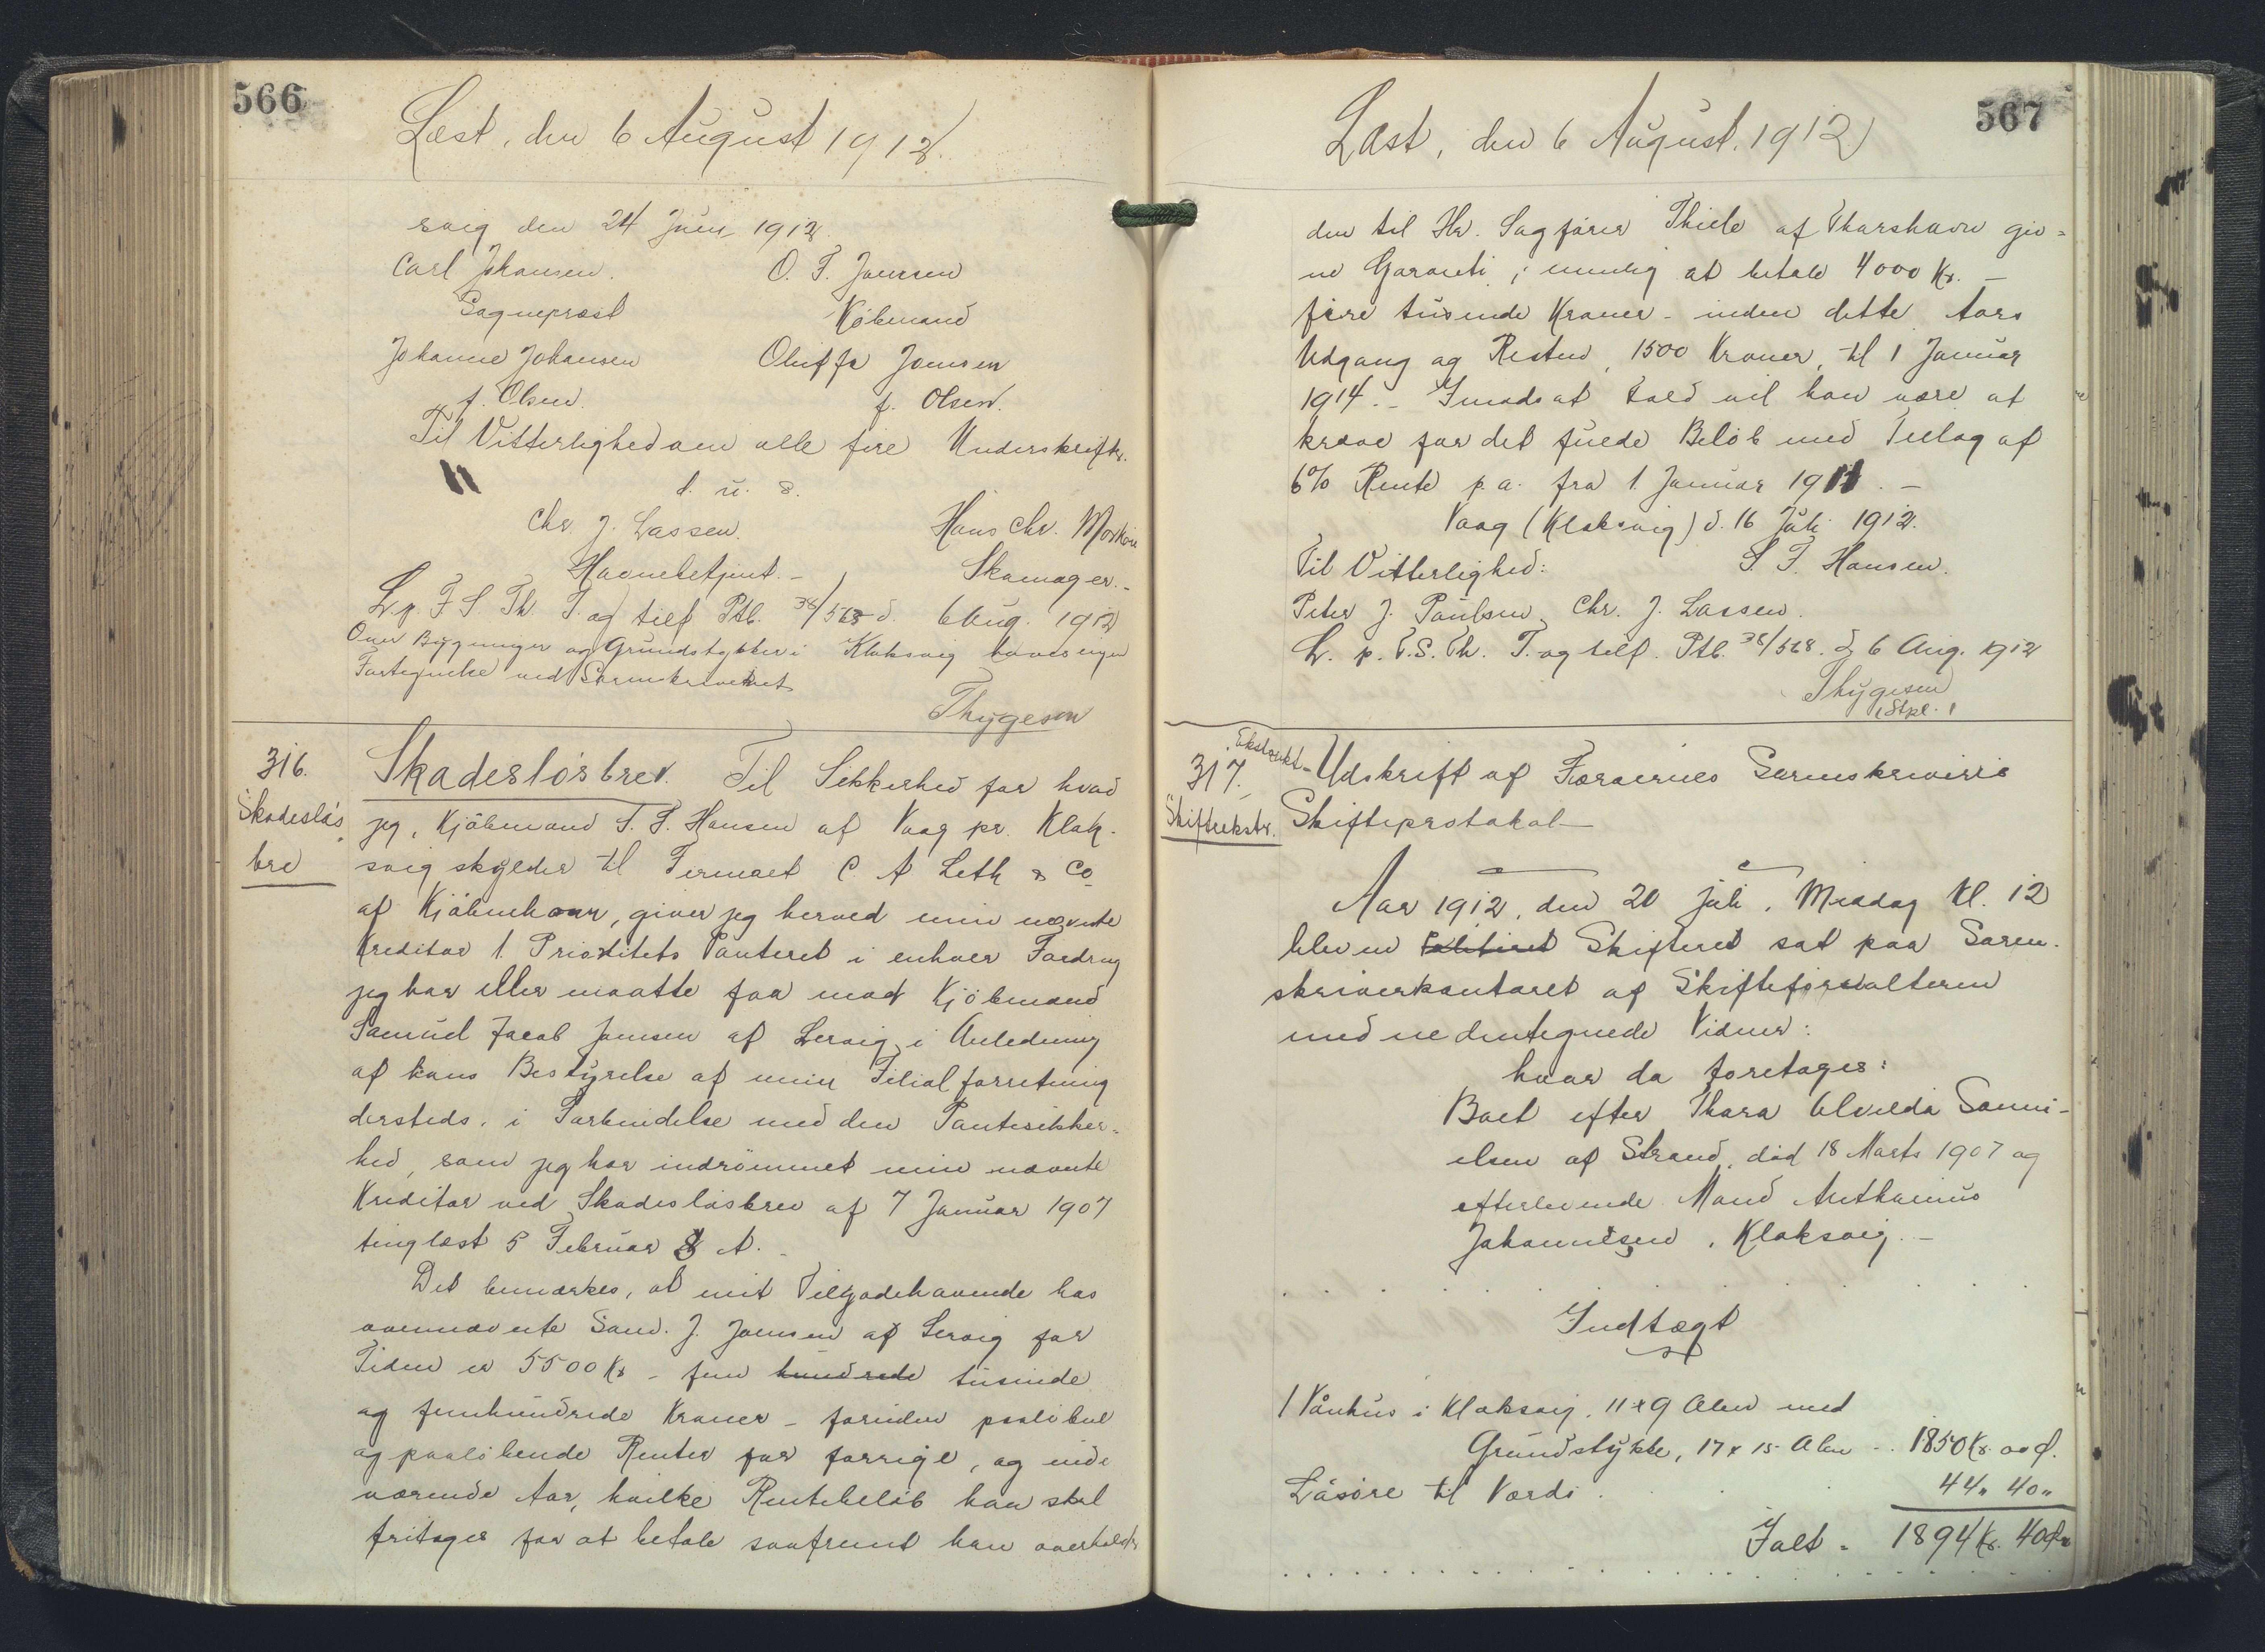 566
Læst, den 6 August 1912.
svig den 24 Juni 1912.
Carl Johansen. O. F. Joensen
Sognepræst Købmand
Johanne Johansen Oluffa Joensen
f. Olsen. f. Olsen.
Til Vitterlighed om alle fire Underskrifter.
d. u. s.
Chr. J. Lassen. Hans Chr.
Havnebetjent. - Skomager. -
L. p. F. S. Th. T. og tilf Ptb. 38/568 d. 6 Aug. 1912
Over Bygninger og Grundstykker i Klaksvig haves ingen
Fortegnelse ved Sorenskriveriet
Thygesen
316.
Skadesløs
brev
Skadesløsbrev. Til Sikkerhed for hvad
jeg, Kjøbmand S. F. Hansen af Vaag pr. Klak-
svig skylder til Firmaet C. A. Leth & Co
af Kjøbenhavn, giver jeg herved min nævnte
Kreditor 1. Prioritets Panteret i enhver Fordring
jeg har eller maatte faa mod Kjøbmand
Samuel Jacob Joensen af Lervig i Anledning
af hans Bestyrelse af min Filialforretning
dersteds, i Forbindelse med den Pantesikker-
hed, som jeg har indrømmet min nævnte
Kreditor ved Skadesløsbrev af 7 Januar 1907
tinglæst 5 Februar s. A. -
Det bemærkes, at mit Tilgodehavende hos
ovennævnte Sam. J. Joensen af Lervig for
Tiden er 5500 Kr - fem hundrede tusinde
og femhundrede Kroner - foruden paaløbne
og paaløbende Renter for forrige, og inde
værende Aar, hvilke Rentebeløb han skal
fritages for at betale saafremt han overholder
567
Læst, den 6 August. 1912
den til Hr. Sagfører Thiele af Thorshavn giv-
ne Garanti, nemlig at betale 4000 Kr. -
fire tusinde Kroner - inden dette Aars
Udgang og Resten, 1500 Kroner, til 1 Januar
1914. - I modsat Fald vil han være at
kræve for det fulde Beløb med Tillæg af
6% Rente p. a. fra 1. Januar 1911. -
Vaag (Klaksvig) d. 16 Juli 1912.
Til Vitterlighed: S. F. Hansen.
Peter J. Poulsen, Chr. J. Lassen.
L. p. F. S. Th. T. og tilf. Ptb. 38/568. d 6 Aug. 1912
Thygesen
(Stpl.)
317.
Skifteekstr.
Ekstrakt-Udskrift af Færøernes Sorenskriveris
Skifteprotokol
Aar 1912, den 20 Juli, Middag Kl. 12
blev en Politiret Skifteret sat paa Soren-
skriverkontoret af Skifteforvalteren
med nedentegnede Vidner:
hvor da foretages:
Boet efter Thora Alvilda Samui-
elsen af Strand, død 18 Marts 1907 og
efterlevende Mand Anthonius
Johannesen, Klaksvig. -
Indtægt
1 Vånhus i Klaksvig, 11 x 9 Alen med
Grundstykke, 17 x 15 Alen - 1850 Kr. 00 Ø.
Løsøre til Værdi 44 " 40 "
Ialt - 1894 Kr. 40 Øre